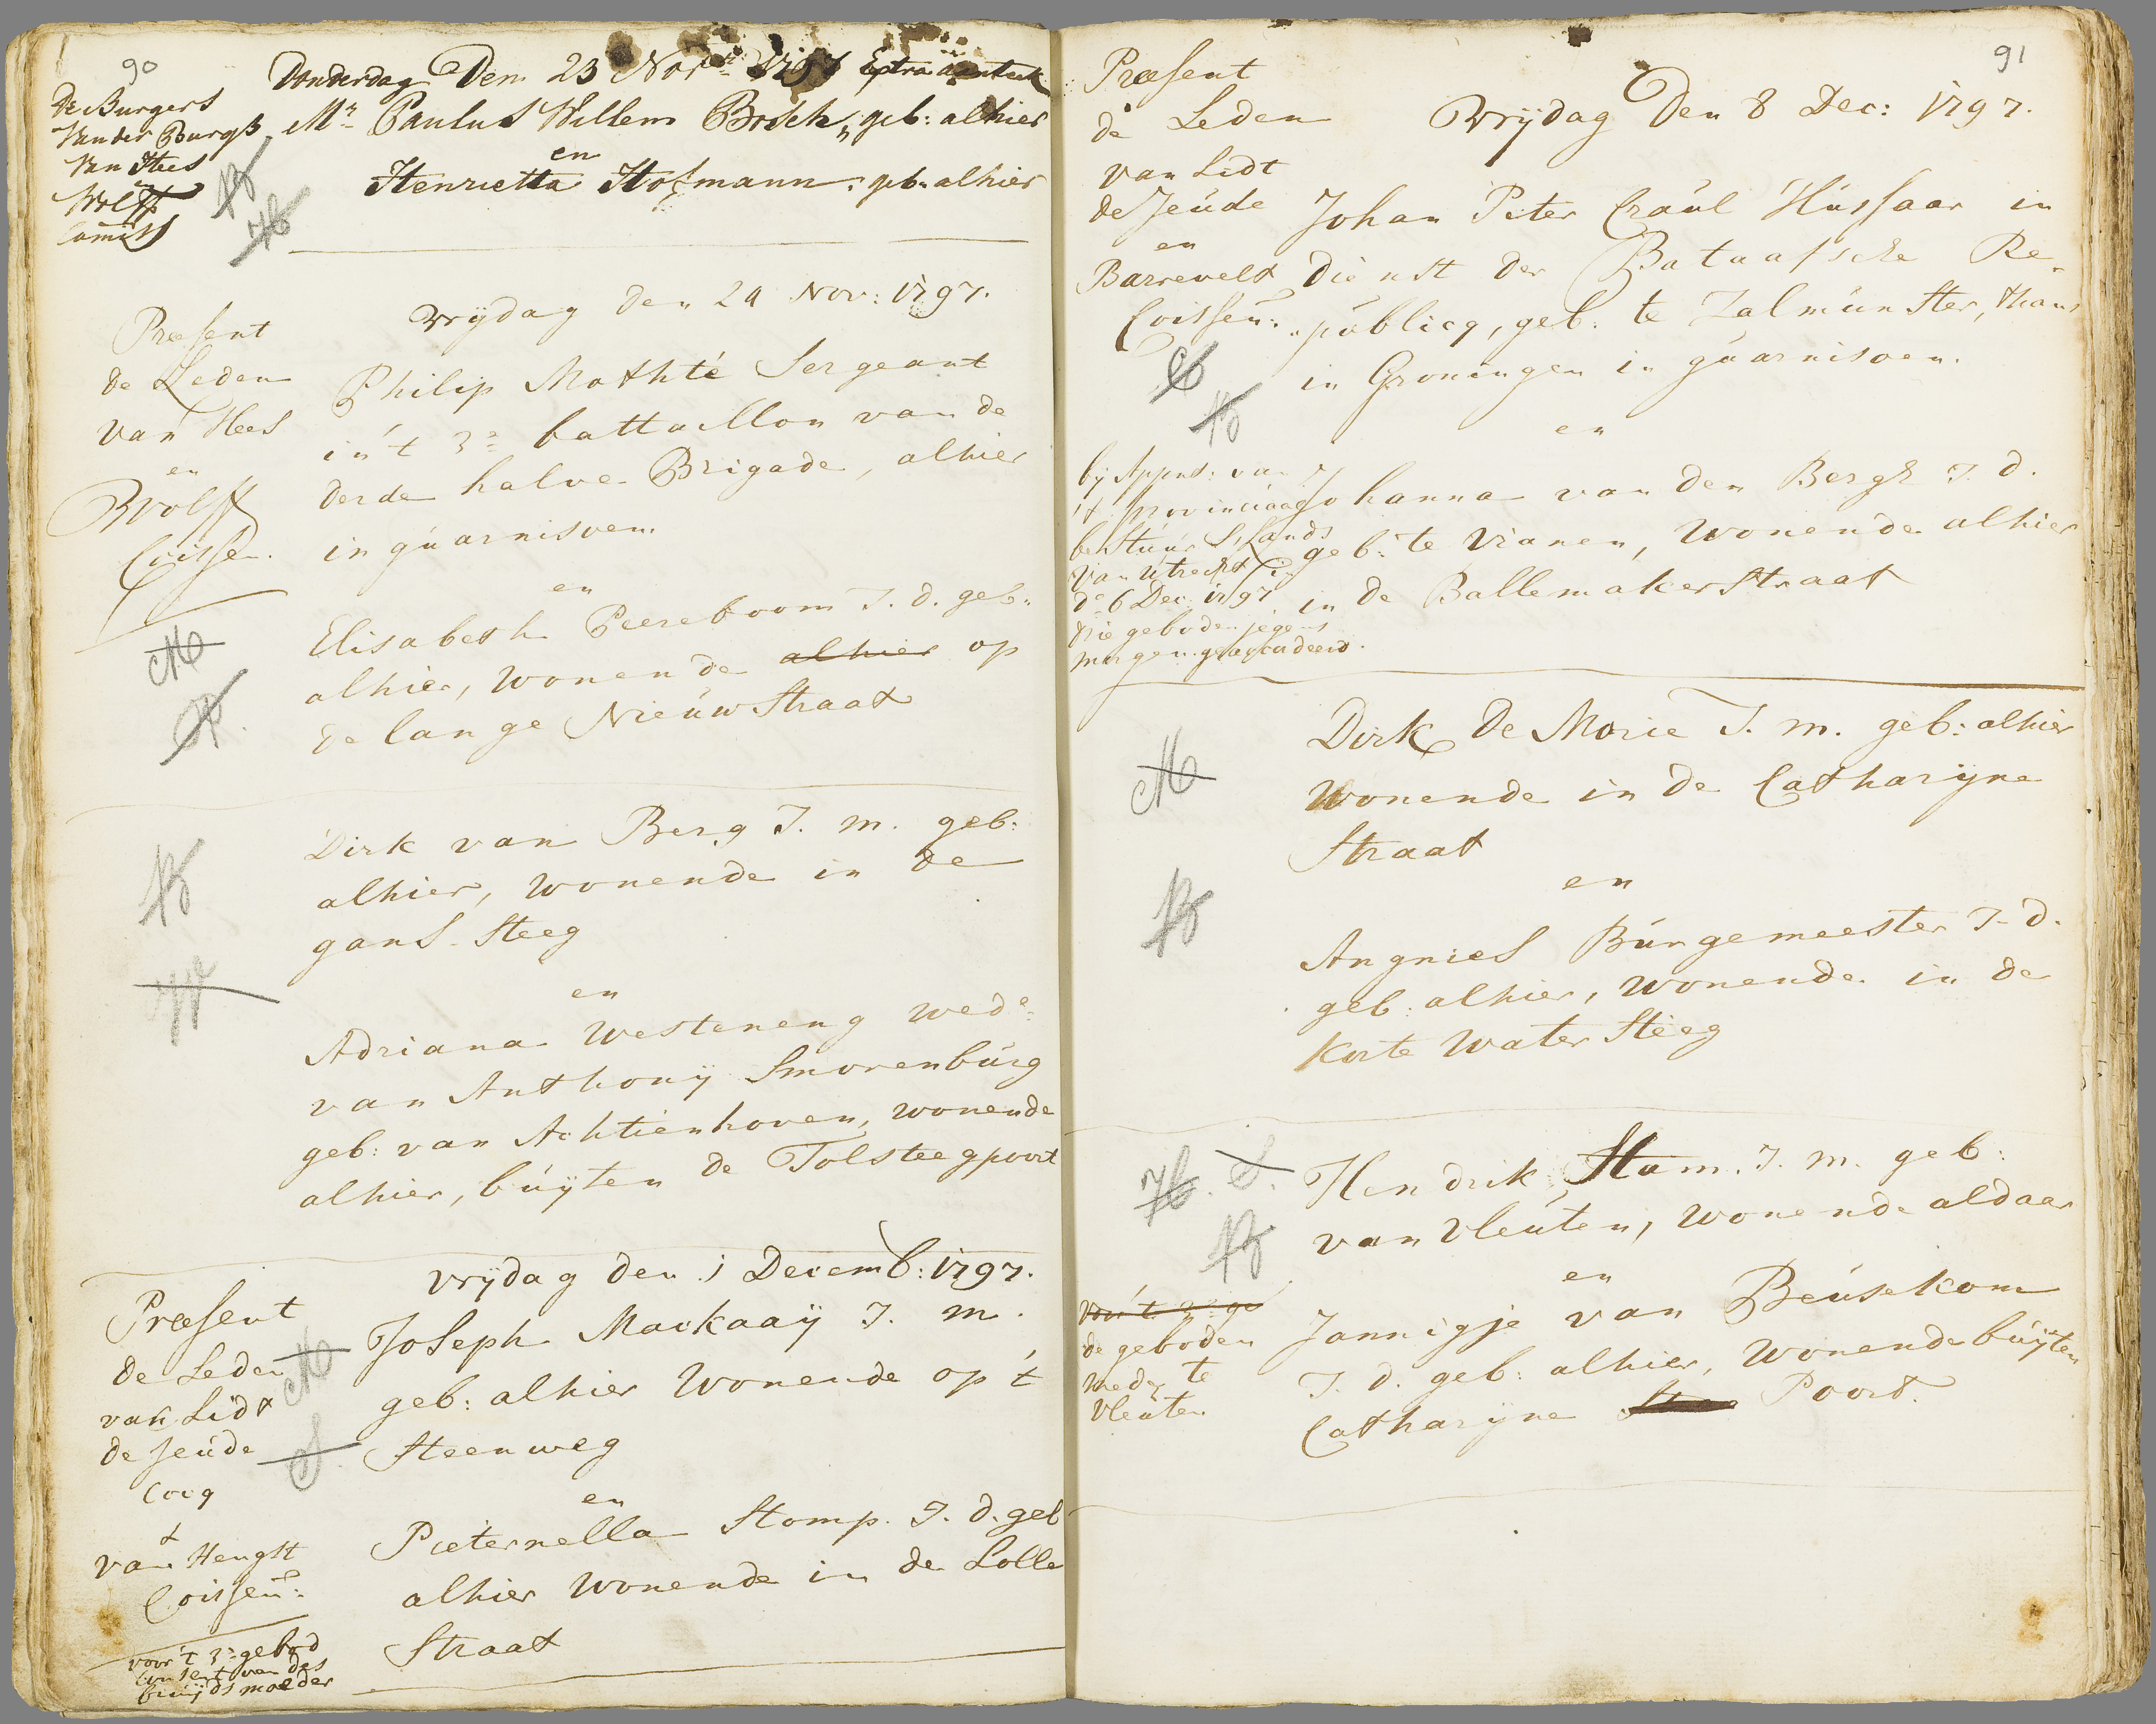 90
Donderdag Den 23 Nov:br 1797 Extra aanteek
De Burgers
van der Burgh
van Hees
en
Wolff
Commiss
Mr. Paulus Willem Bosch, geb: alhier
en
Henrietta Hofmann, geb: alhier
vrijdag den 24 Nov: 1797.
Præsent
de Leden
van Hees
en
Wolff
Coissen.
Philip Mathté Sergeant
in 't 3e battaillon van de
derde halve Brigade, alhier
in guarnisoen.
en
Elisabeth Peereboom J. d. geb:
alhier, wonende alhier op
de lange Nieuwstraat
M
P.
Dirk van Berg J. m. geb:
alhier, wonende in de
gans-steeg
en
Adriana Westeneng wede:
van Anthonij Smorenburg
geb: van Achtienhoven, wonende
alhier, buijten de Tolsteegpoort
B
W
vrijdag den 1 Decemb: 1797.
Præsent
de Leden
van Lidt
de Jeude
Cocq
&
van Hengst
Coissen:
Joseph Mackaaij J. m.
geb: alhier wonende op 't
Steenweg
en
Pieternella Stomp. J. d. geb
alhier wonende in de Lolle
Straat
M
S.
voor 't 3e gebod
consent van des
bruijds moeder
91
Præsent
de Leden
van Lidt
de Jeude
en
Barrevelt
Coissen:
Vrijdag Den 8 Dec: 1797.
Johan Peter Craul Hussaar in
dienst der Bataafsche Re-
publicq, geb: te Salmunster, thans
in Groningen in guarnisoen.
en
Johanna van den Bergh J. d.
geb: te Vianen, wonende alhier
in de Ballemakerstraat
C
B
bij Appnt: van
't provinciaal
bestuur 's Lands
van Utrecht in
de 6 Dec: 1797
drie geboden jegens
morgen geaccordeerd.
Dirk De Morie J. m. geb: alhier
wonende in de Catharijne
Straat
en
Angnies Burgemeester J. d.
geb: alhier, wonende in de
korte Water Steeg
M
B
Hendrik Stam. J. m. geb:
van Vleuten, wonende aldaar
en
Jannigje van Beusekom
J. d. geb: alhier, wonende buijten
Catharijne Poort.
H. S.
B
voor 't 3e ge
de geboden
mede te
Vleuten